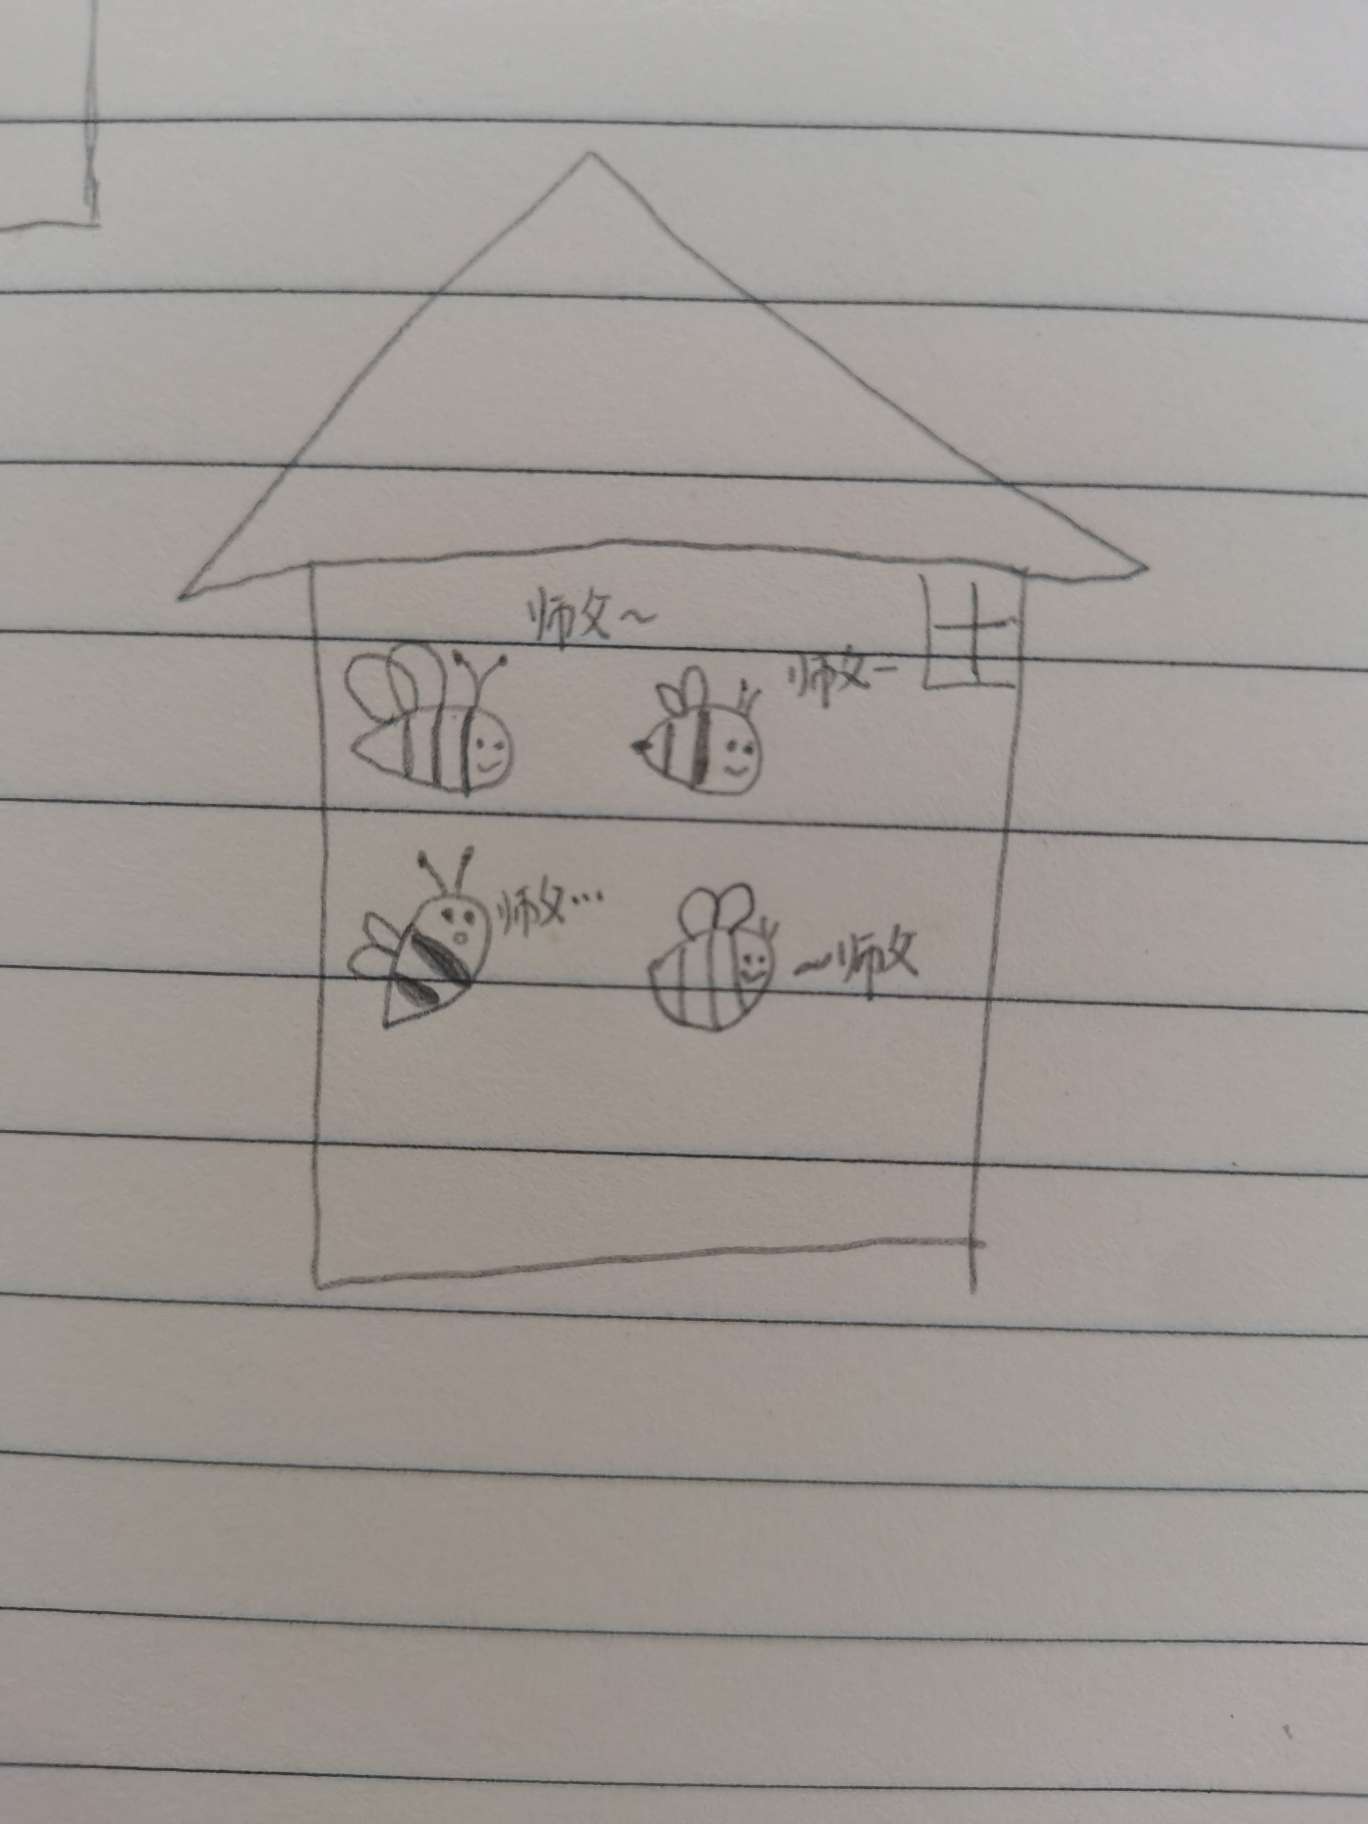 师父～
师父－
师父…
～师父